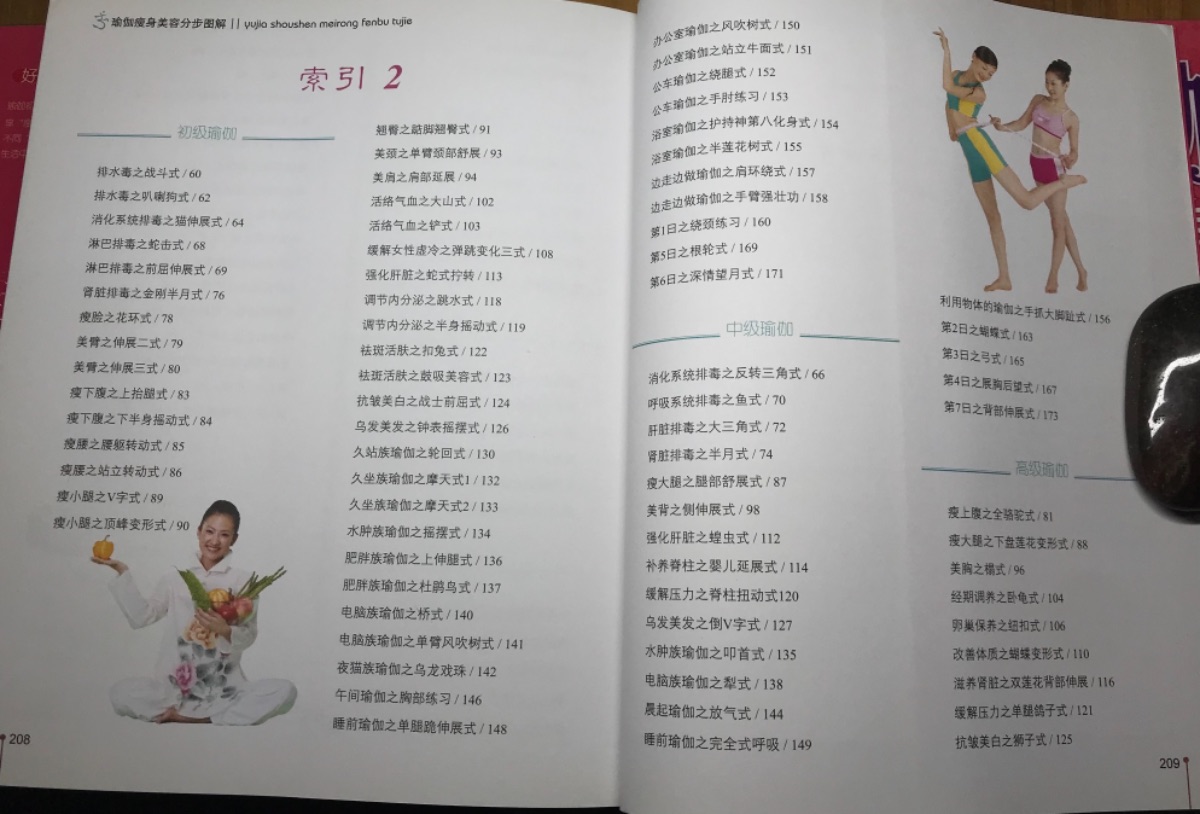 瑜伽瘦身美容分步图解 || yujia shoushen meirong fenbu tujie
索引 2
初级瑜伽
排水毒之战斗式 / 60
排水毒之叭喇狗式 / 62
消化系统排毒之猫伸展式 / 64
淋巴排毒之蛇击式 / 68
淋巴排毒之前屈伸展式 / 69
肾脏排毒之金刚半月式 / 76
瘦脸之花环式 / 78
美臂之伸展二式 / 79
美臂之伸展三式 / 80
瘦下腹之上抬腿式 / 83
瘦下腹之下半身摇动式 / 84
瘦腰之腰躯转动式 / 85
瘦腰之站立转动式 / 86
瘦小腿之V字式 / 89
瘦小腿之顶峰变形式 / 90
翘臀之踮脚翘臀式 / 91
美颈之单臂颈部舒展 / 93
美肩之肩部延展 / 94
活络气血之大山式 / 102
活络气血之铲式 / 103
缓解女性虚冷之弹跳变化三式 / 108
强化肝脏之蛇式拧转 / 113
调节内分泌之跳水式 / 118
调节内分泌之半身摇动式 / 119
祛斑活肤之扣兔式 / 122
祛斑活肤之鼓吸美容式 / 123
抗皱美白之战士前屈式 / 124
乌发美发之钟表摇摆式 / 126
久站族瑜伽之轮回式 / 130
久坐族瑜伽之摩天式1 / 132
久坐族瑜伽之摩天式2 / 133
水肿族瑜伽之摇摆式 / 134
肥胖族瑜伽之上伸腿式 / 136
肥胖族瑜伽之杜鹃鸟式 / 137
电脑族瑜伽之桥式 / 140
电脑族瑜伽之单臂风吹树式 / 141
夜猫族瑜伽之乌龙戏珠 / 142
午间瑜伽之胸部练习 / 146
睡前瑜伽之单腿跪伸展式 / 148
208
办公室瑜伽之风吹树式 / 150
办公室瑜伽之站立牛面式 / 151
公车瑜伽之绕腿式 / 152
公车瑜伽之手肘练习 / 153
浴室瑜伽之护持神第八化身式 / 154
浴室瑜伽之半莲花树式 / 155
边走边做瑜伽之肩环绕式 / 157
边走边做瑜伽之手臂强壮功 / 158
第1日之绕颈练习 / 160
第5日之根轮式 / 169
第6日之深情望月式 / 171
中级瑜伽
消化系统排毒之反转三角式 / 66
呼吸系统排毒之鱼式 / 70
肝脏排毒之大三角式 / 72
肾脏排毒之半月式 / 74
瘦大腿之腿部舒展式 / 87
美背之侧伸展式 / 98
强化肝脏之蝗虫式 / 112
补养脊柱之婴儿延展式 / 114
缓解压力之脊柱扭动式120
乌发美发之倒V字式 / 127
水肿族瑜伽之叩首式 / 135
电脑族瑜伽之犁式 / 138
晨起瑜伽之放气式 / 144
睡前瑜伽之完全式呼吸 / 149
利用物体的瑜伽之手抓大脚趾式 / 156
第2日之蝴蝶式 / 163
第3日之弓式 / 165
第4日之展胸后望式 / 167
第7日之背部伸展式 / 173
高级瑜伽
瘦上腹之全骆驼式 / 81
瘦大腿之下盘莲花变形式 / 88
美胸之榻式 / 96
经期调养之卧龟式 / 104
卵巢保养之纽扣式 / 106
改善体质之蝴蝶变形式 / 110
滋养肾脏之双莲花背部伸展 / 116
缓解压力之单腿鸽子式 / 121
抗皱美白之狮子式 / 125
209